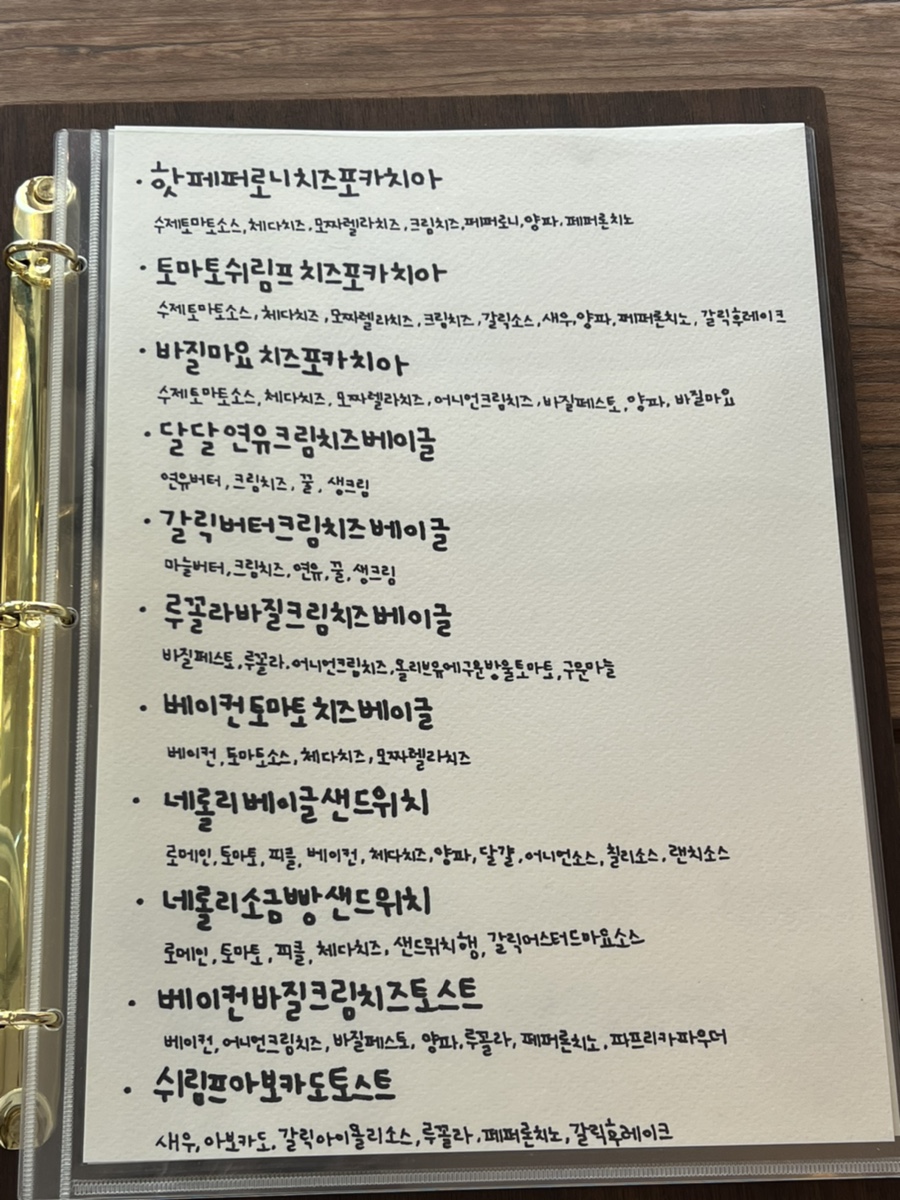 · 핫페퍼로니치즈포카치아
수제토마토소스, 체다치즈, 모짜렐라치즈, 크림치즈, 페퍼로니, 양파, 페퍼론치노
· 토마토쉬림프치즈포카치아
수제토마토소스, 체다치즈, 모짜렐라치즈, 크림치즈, 갈릭소스, 새우, 양파, 페퍼론치노, 갈릭후레이크
· 바질마요 치즈포카치아
수제토마토소스, 체다치즈, 모짜렐라치즈, 어니언크림치즈, 바질페스토, 양파, 바질마요
· 달달 연유크림치즈베이글
연유버터, 크림치즈, 꿀, 생크림
· 갈릭버터크림치즈베이글
마늘버터, 크림치즈, 연유, 꿀, 생크림
· 루꼴라바질크림치즈베이글
바질페스토, 루꼴라, 어니언크림치즈, 올리브유에구운방울토마토, 구운마늘
· 베이컨토마토치즈베이글
베이컨, 토마토소스, 체다치즈, 모짜렐라치즈
· 네롤리베이글샌드위치
로메인, 토마토, 피클, 베이컨, 체다치즈, 양파, 달걀, 어니언소스, 칠리소스, 랜치소스
· 네롤리소금빵샌드위치
로메인, 토마토, 피클, 체다치즈, 샌드위치햄, 갈릭머스터드마요소스
· 베이컨바질크림치즈토스트
베이컨, 어니언크림치즈, 바질페스토, 양파, 루꼴라, 페퍼론치노, 파프리카파우더
· 쉬림프아보카도토스트
새우, 아보카도, 갈릭아이올리소스, 루꼴라, 페퍼론치노, 갈릭후레이크